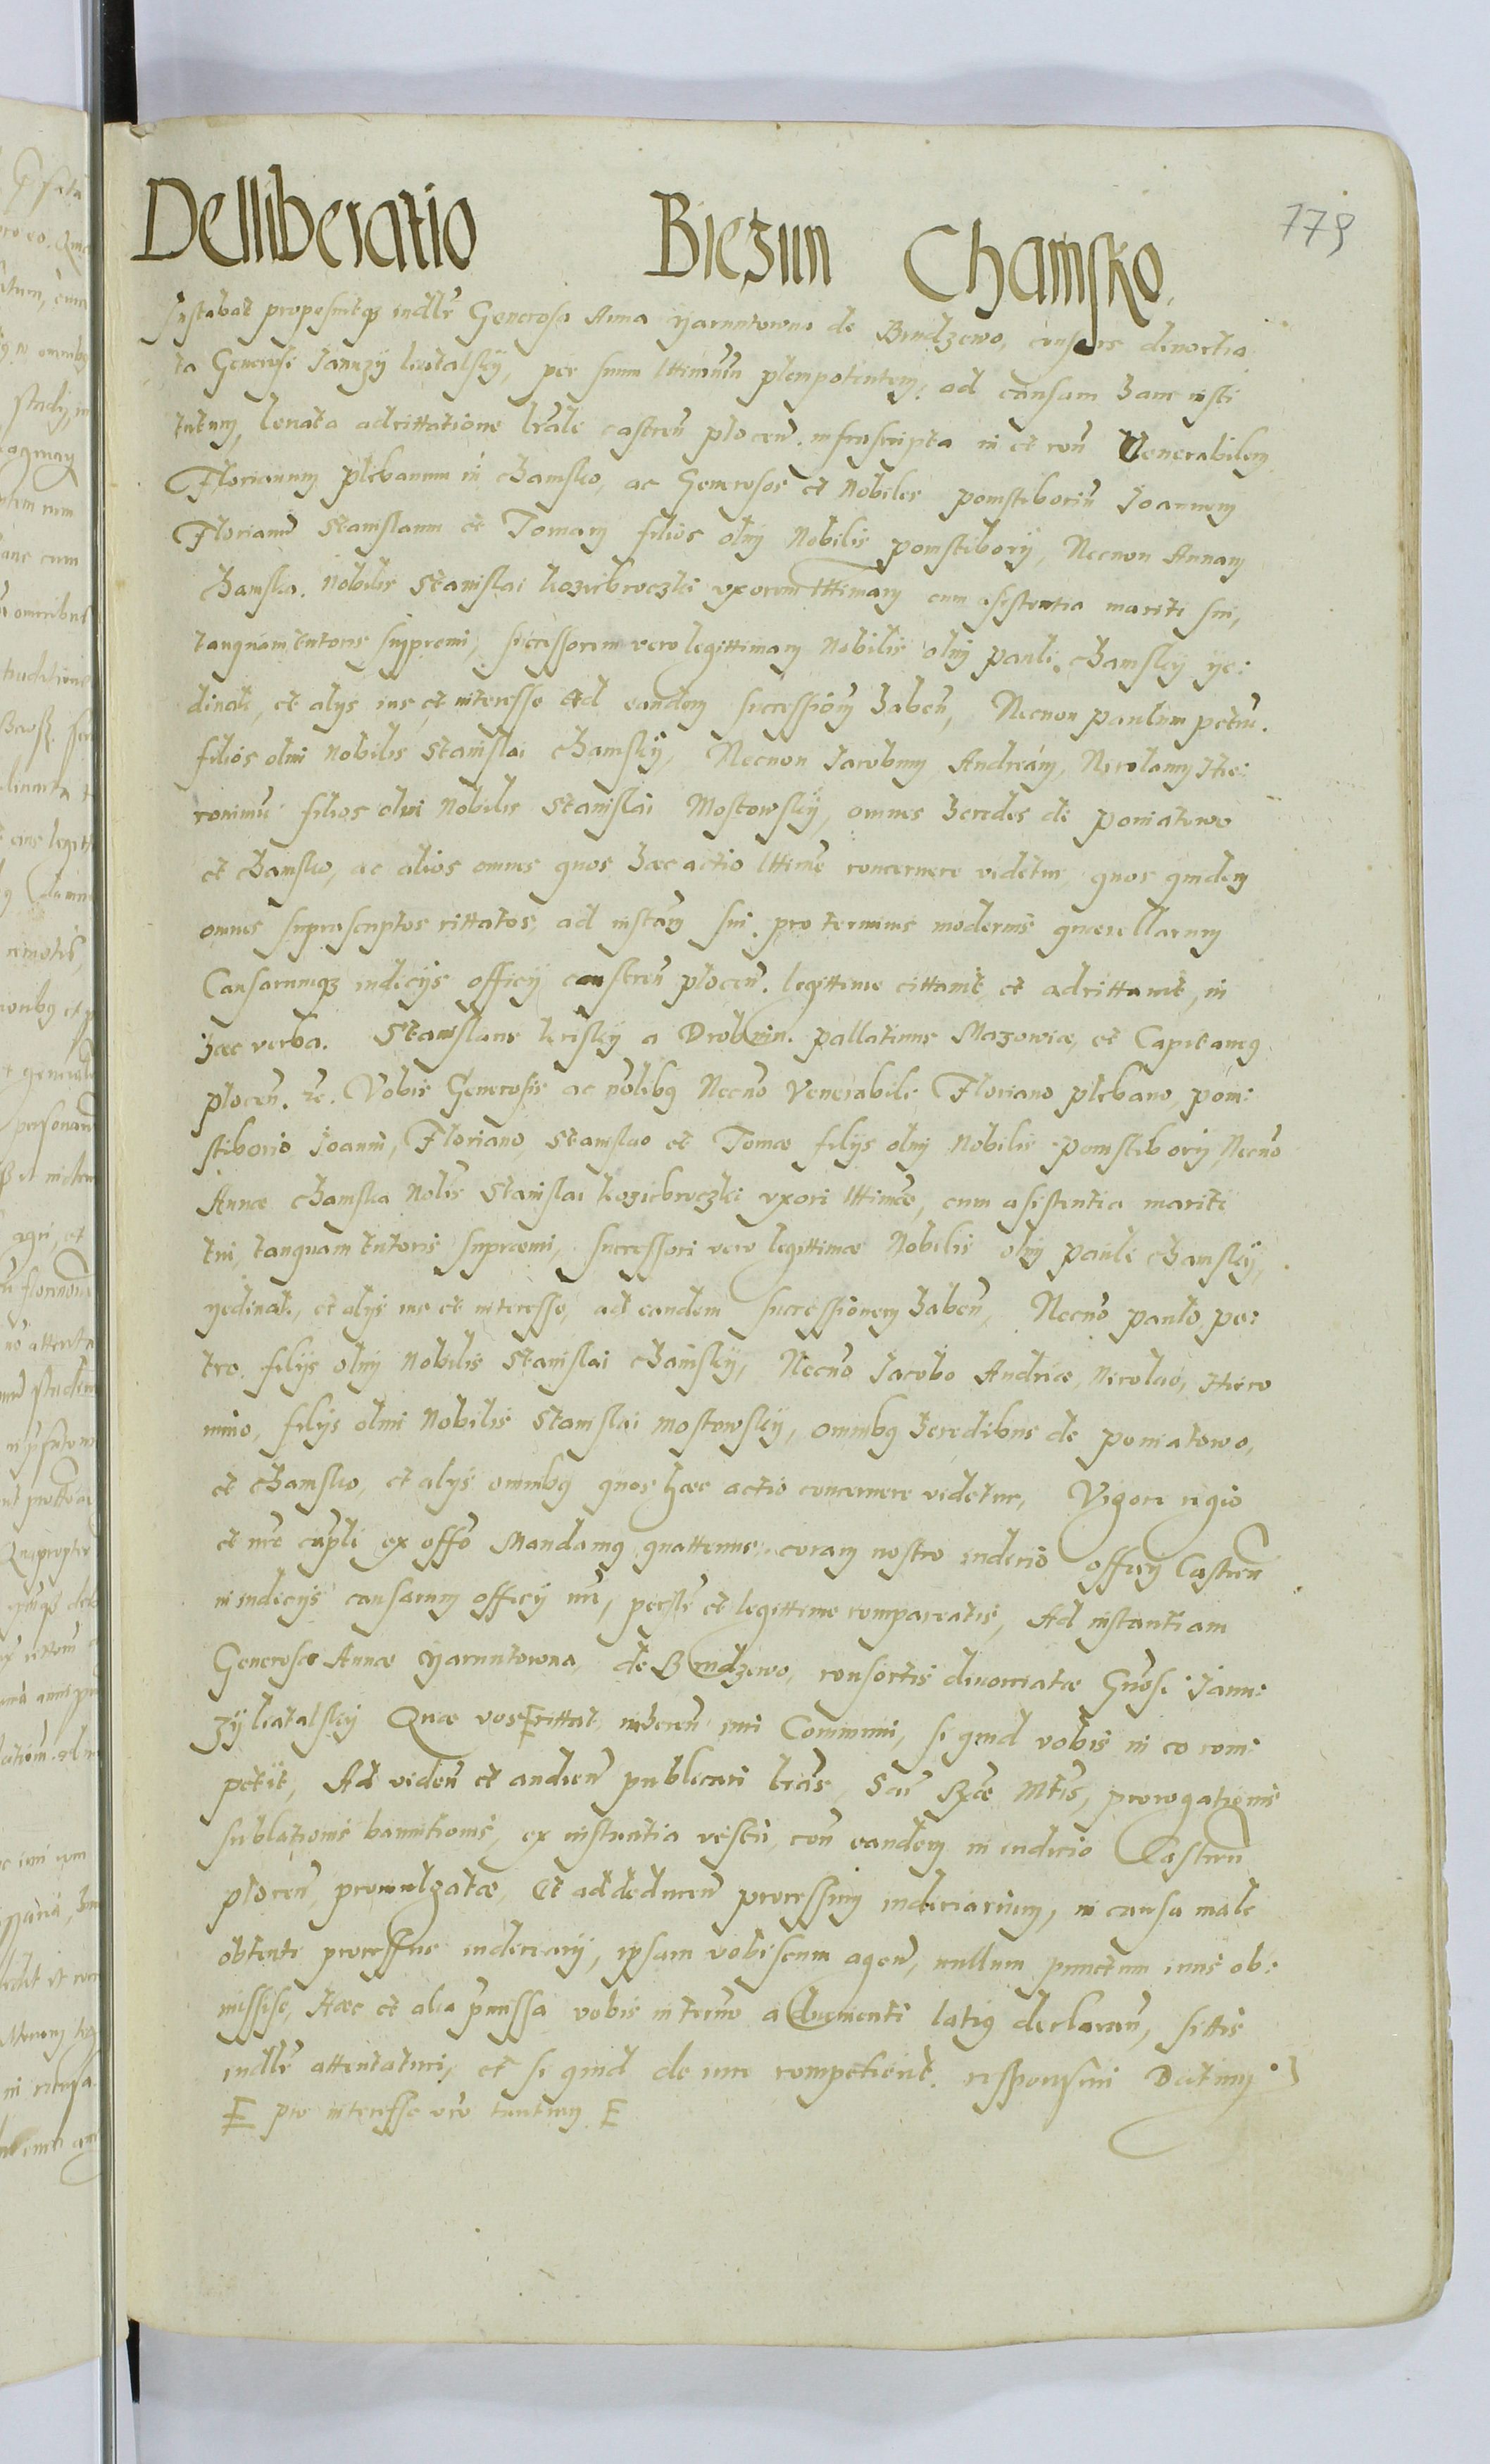 179
Delliberatio Biezun Chamsko.
Instabat proposuitq3 iudlr Generosa Anna Yaruntowna de Brudzewo, consors divortia
ta Generosi Januzÿ Liatalskÿ, per suum lttimum plenipotentem, ad causam hanc insti
tutum, levata adcittatione lrali castren plocen. infrascripta in et con Venerabilem
Florianum plebanum in Chamsko, ac Generosos et Nobiles pomstiborium Joannem
Florianum Stanislaum et Tomam filios olim Nobilis pomstiborÿ, Necnon Annam
Chamska, Nobilis Stanislai Kozicbroczki uxorem lttimam cum assistentia mariti sui,
tanquam tutoris suppremi, successorem vero legittimam Nobilis olim pauli Chamskÿ ye:
dinak, et alÿs ius et interesse ad eandem successionem haben, Necnon paulum petru.
filios olim nobilis Stanislai Chamskÿ, Necnon Jacobum Andream, Nicolaum Hie:
ronimu filios olim Nobilis Stanislai Mostowskÿ, omnes heredes de poniatowo
et Chamsko, ac alios omnes quos haec actio lttime concernere videtur, quos quidem
omnes suprascriptos cittatos, ad instam sui pro terminis modernis querellarum
Causarumq3 iudicÿs officÿ castren plocen. legittime cittavit et adcittavit, in
haec verba. Stanislaus Kriskÿ a Drobnin. pallatinus Mazoviae, et Capitaneus
plocen. etc. Vobis Generosis ac nolibus Necno Venerabili Floriano plebano, pom:
stiborio Joanni, Floriano, Stanislao et Tomae filÿs olim Nobilis pomstiborÿ, Necno
Annae Chamska Nolis Stanislai Kozicbroczki uxori lttimae, cum asistentia mariti
tui, tanquam tutoris supraemi, successori vero legittimae Nobilis olim pauli Chamskÿ,
yedinak, et alÿs ius et interesse, ad eandem successionem haben, Necno paulo, pe:
tro, filÿs olim Nobilis Stanislai Chamskÿ, Necno Jacobo Andreae, Nicolao, Hiero
nimo, filÿs olim Nobilis Stanislai Mostowskÿ, omnibus heredibus de poniatowo,
et Chamsko, et alÿs omnibus quos haec actio concernere videtur, Vigore regio
et nro cupli ex offo Mandamus quattenus coram nostro iudicio officÿ Castren
in iudicÿs causarum officÿ nri, perslr et legittime compareatis, Ad instantiam
Generosae Annae Yaruntowna, de Brudzewo, consortis divorciatae Gnosi Janu:
zÿ Liatalskÿ Quae vos E cittat, inheren iuri Communi, si quid vobis in eo com:
petÿt, Ad viden et audien publicari lras, Sac Rgae Mtis, prorogationis
sublationis bannitionis, ex instantia vestri, con eandem in iudicio Castren
plocen, promulgatae, Et addeducen processum iudiciarium, in causa male
obtenti processus iudiciarÿ, ipsam vobiscum agen, nullum punctum iuris ob:
missise, Haec et alia pmissa vobis in termo advenienti latius declaran, sittis
iudlr attentaturi, et si quid de iure competierit responsuri Datum
E pro interesse vro tantum E